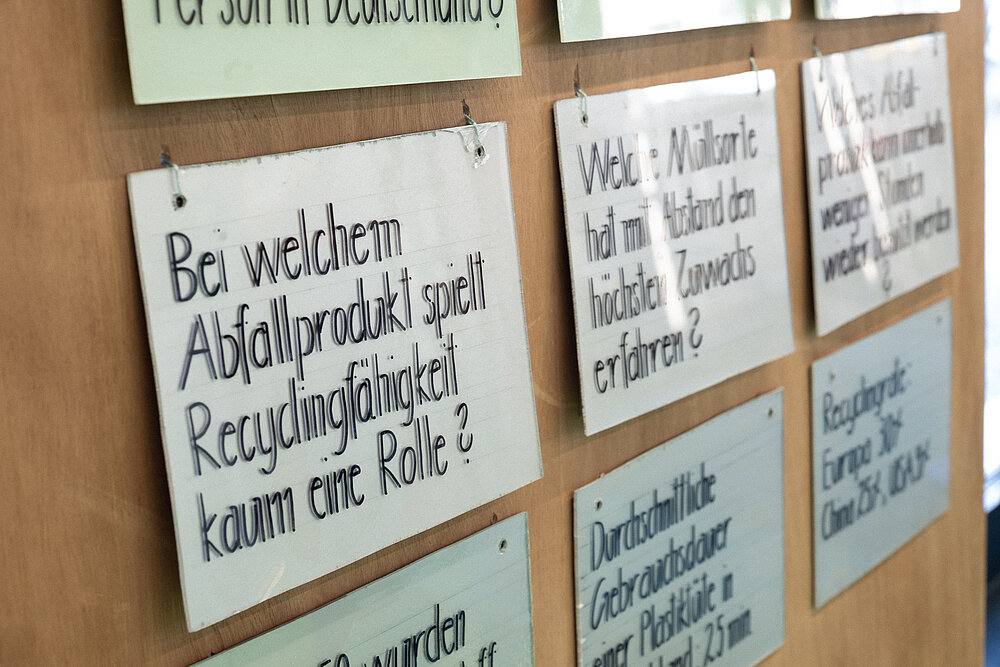 Person in Deutschland?
Bei welchem
Abfallprodukt spielt
Recyclingfähigkeit
kaum eine Rolle?
Welche Müllsorte
hat mit Abstand den
höchsten Zuwachs
erfahren?
Welches Abfall-
produkt kann innerhalb
weniger Stunden
wieder bezahlt werden
?
wurden
Durchschnittliche
Gebrauchsdauer
einer Plastiktüte in
25 min.
Recyclingrate:
Europa 30%
China 25%, USA 9%